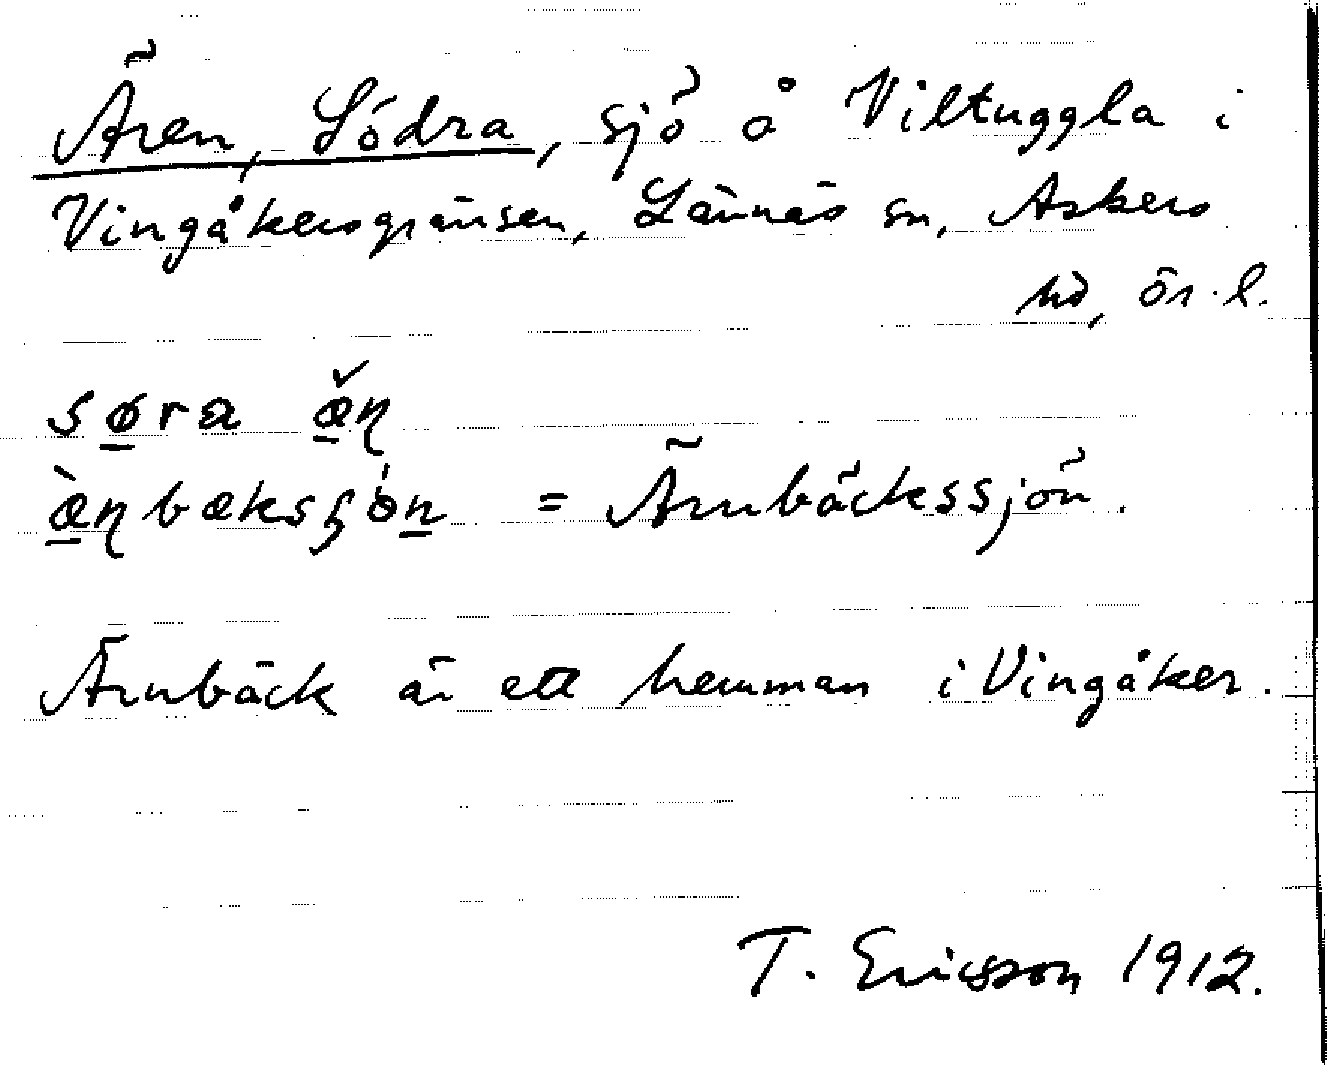 Ären, Södra, sjö å Viltuggla i
Vingåkersgränsen, Lännäs sn, Askers
hd, ör. l.
søra æ̌ɳ
æ̀ɳbæksʂǿn = Ärnbäckssjön.
Ärnbäck är ett hemman i Vingåker.
T. Ericsson 1912.